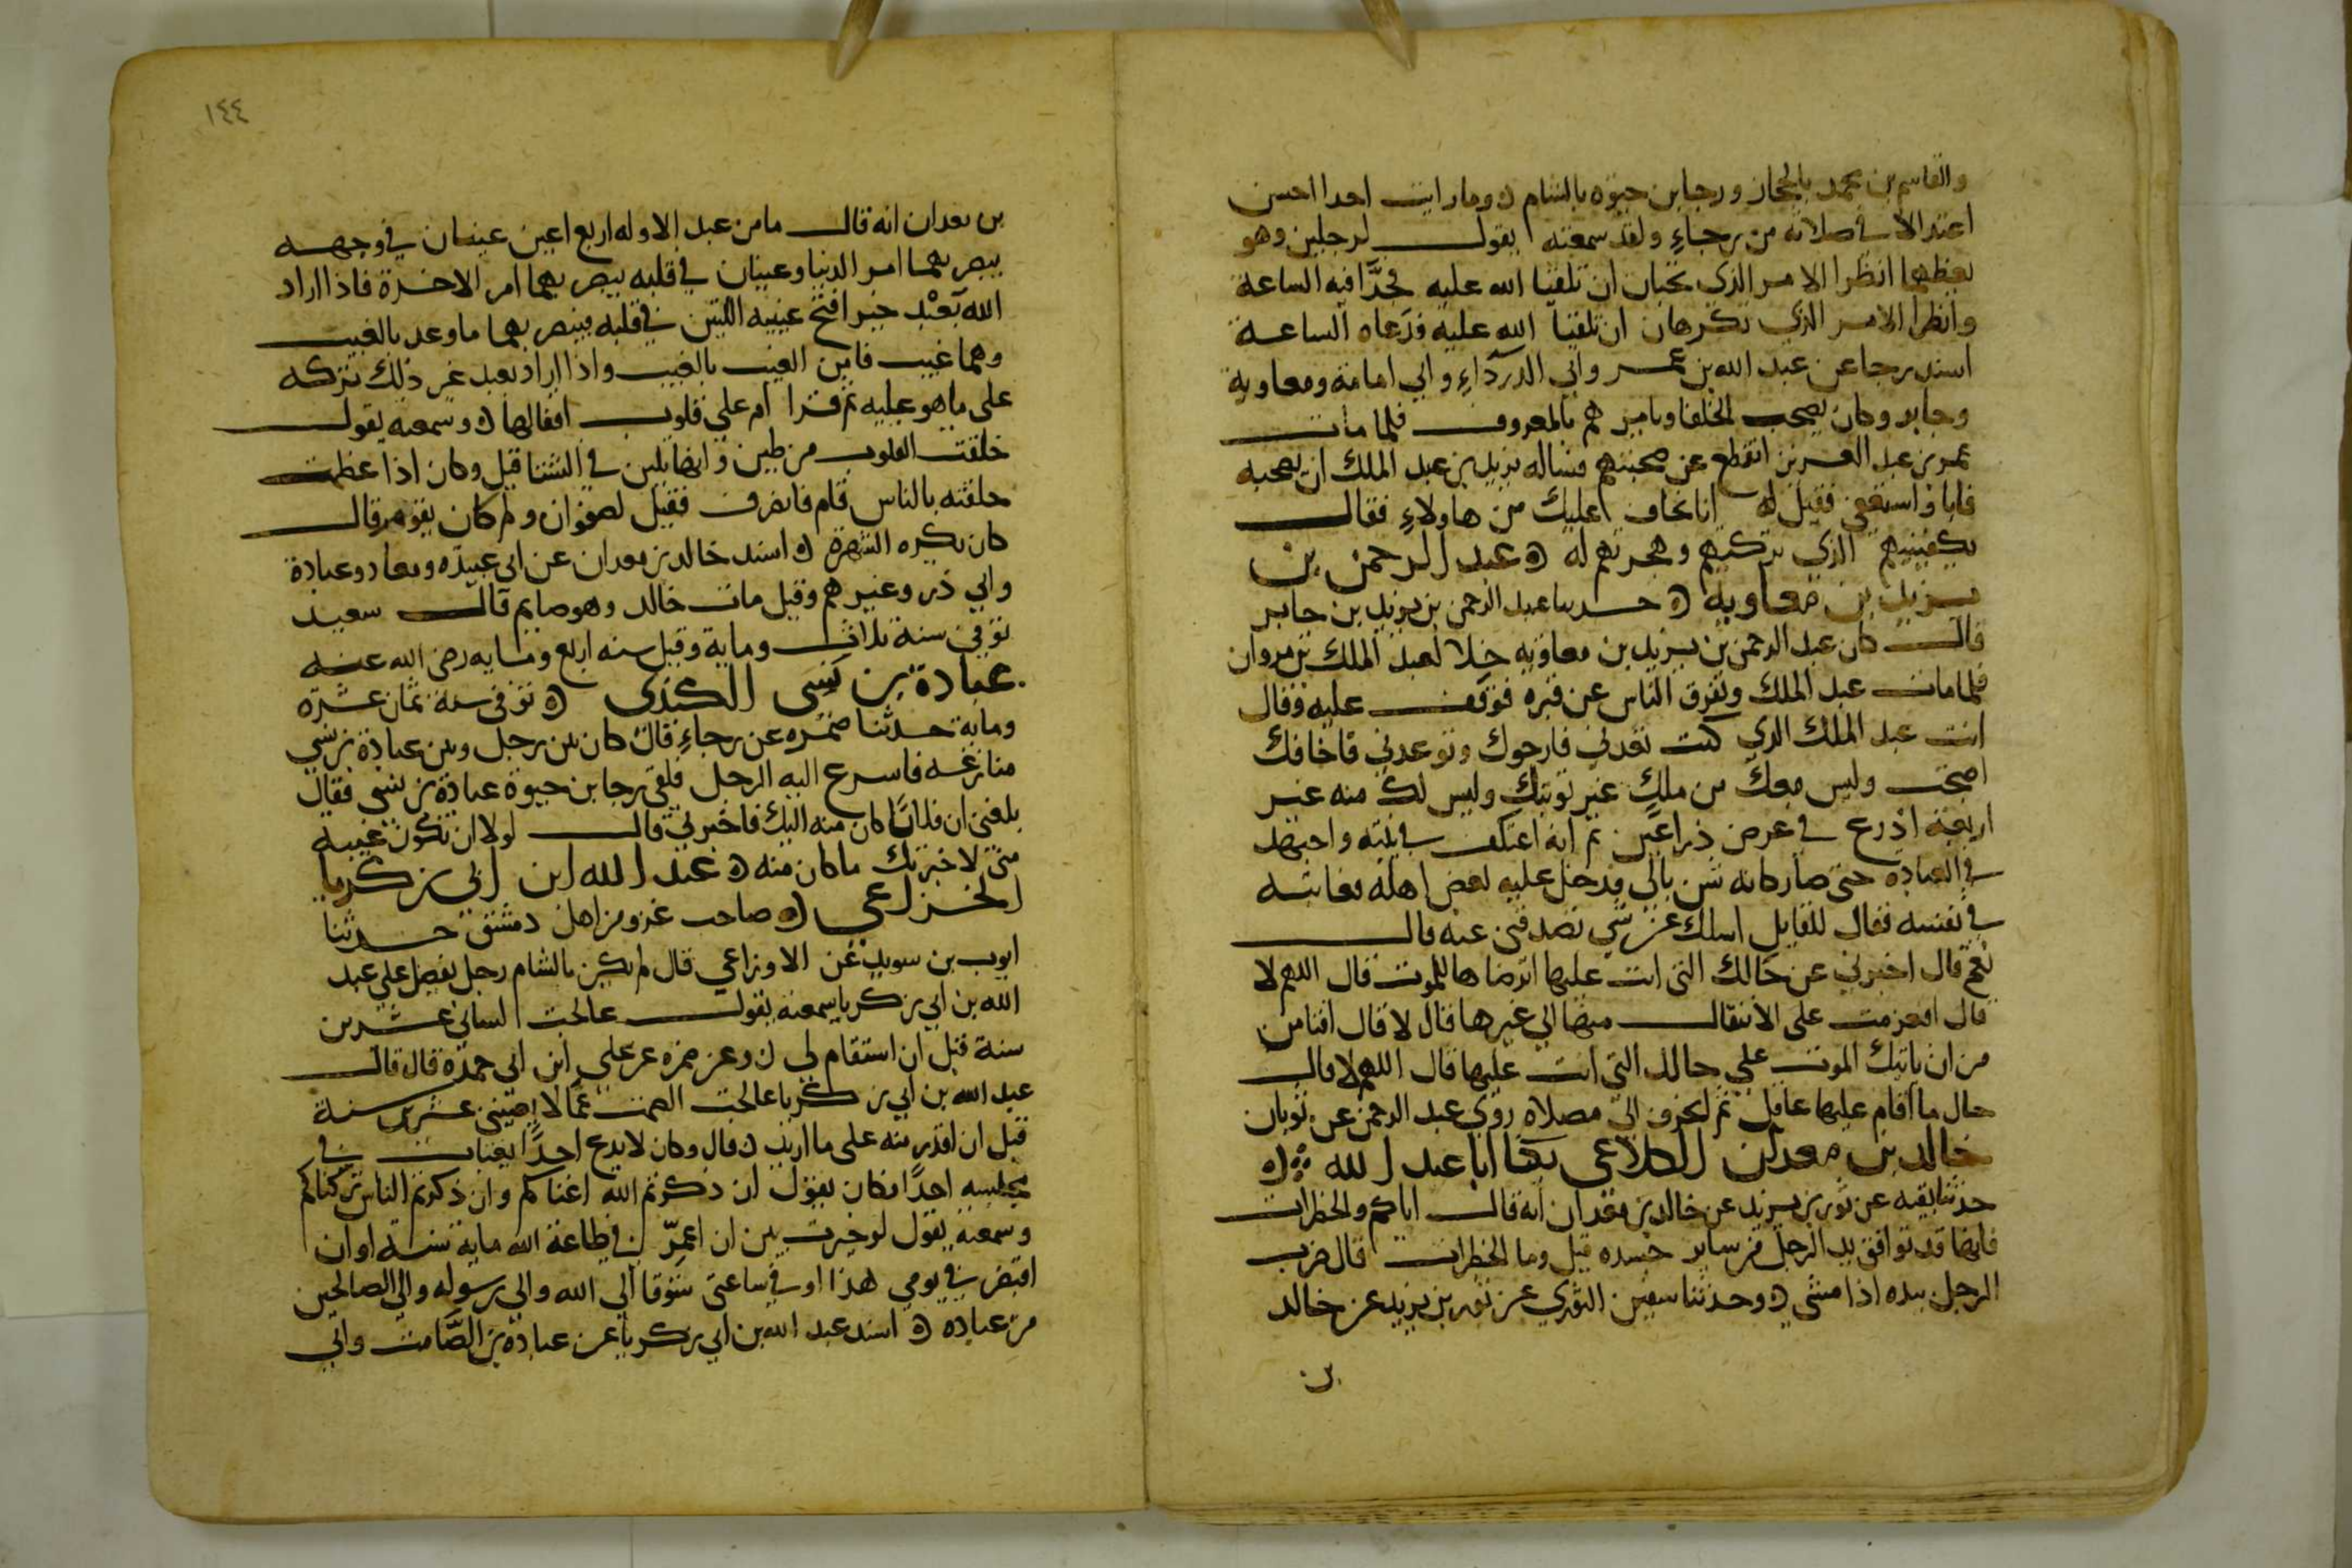 والقاسم بن محمد بالحجاز ورجا بن حيوه بالشام ه وما رايت احدا احسن
اعتدالا في صلاته من رجاءِ ولقد سمعته يقول لرجلين وهو
يعظهما انظرا الامر الذي تحبان ان تلقيا الله عليه فخُذا فيه الساعة
وانظرا الامر الذي تكرهان ان تلقيا الله عليه فدَعاه الساعة
اسند رجا عن عبد الله بن عمر وابي الدرداءِ وابي امامة ومعاوية
وجابر وكان يصحب الخلفا ويامرهم بالمعروف فلما مات
عمر بن عبد العزيز انقطع عن صحبتهم فساله يزيد بن عبد الملك ان يصحبه
فابا واستعفى فقيل له انا نخاف عليك من هاولاءِ فقال
يكفينيهم الذي تركتهم وهجرتهم له ه عبد الرحمن بن
يزيد بن معاوية ه حدثنا عبد الرحمن بن يزيد بن جابر
قال كان عبد الرحمن بن يزيد بن معاويه خلا لعبد الملك بن مروان
فلما مات عبد الملك وتفرق الناس عن قبره فوقف عليه وقال
انت عبد الملك الذي كنت تعدني فارجوك وتوعدني فاخافك
اصبحت وليس معك من ملكٍ غير ثوبيك وليس لك منه غير
اربعة اذرع في عرض ذراعين ثم انه اعتكف في بيته واجتهد
في العبادة حتى صار كانه شن بالي فدخل عليه بعض اهله فعاتبه
في نفسه فقال للقايل اسلك عن شي تصدقني عنه قال
نعم قال اخبرني عن حالك التي انت عليها اترضاها للموت قال اللهم لا
قال افعزمت على الانتقال منها الي غيرها قال لا قال افتامن
من ان ياتيك الموت علي حالك التي انت عليها قال اللهم لا قال
حال ما اقام عليها عاقل ثم انحرف الى مصلاه روي عبد الرحمن عن ثوبان
خالد بن معدان الكلاعي يكنا ابا عبد الله ه
حدثنا بقيه عن ثور بن يزيد عن خالد بن معدان انه قال اياكم والخطرات
فانها قد توافق يد الرجل من ساير جسده قيل وما الخطرات قال ضرب
الرجل بيده اذا مشي ه وحدثنا سفين الثوري عن ثور بن يزيد عن خالد
بن
١٤٤
بن معدان انه قال ما من عبد الا وله اربع اعين عينان في وجهه
يبصر بهما امر الدنيا وعينان في قلبه يبصر بهما امر الاخرة فاذا اراد
الله بعْبدٍ خير افتح عينيه اللتين في قلبه فيبصر بهما ما وعد بالغيب
وهما غيب فامن الغيب بالغيب واذا اراد بعبد غير ذلك تركه
على ما هو عليه ثم قرا ام علي قلوب اقفالها ه وسمعته يقول
خلقت القلوب من طين وانها تلين في الشتا قيل وكان اذا عظمت
حلقته بالناس قام فانصرف فقيل لصفوان ولم كان يقوم قال
كان يكره الشهرة ه اسند خالد بن معدان عن ابي عبيده ومعاذ وعبادة
وابي ذر وغيرهم وقيل مات خالد وهو صايم قال سعيد
توفي سنة ثلاث وماية وقيل سنه اربع ومايه رضي الله عنه
عبادة بن نسى الكندى ه توفي سنة ثمان عشرة
وماية حدثنا ضمره عن رجاءِ قال كان بين رجل وبين عبادة بن نسي
منازعه فاسرع اليه الرجل فلقي رجا بن حيوة عبادة بن نسي فقال
بلغني ان فلانًا كان منه اليك فاخبرني قال لولا ان تكون غيبه
مني لاخبرتك ما كان منه ه عبد الله ابن ابي زكريا
الخزاعي ه صاحب غزو من اهل دمشق حدثنا
ايوب بن سويد عن الاوزاعي قال لم يكن بالشام رجل يفضل علي عبد
الله بن ابي زكريا سمعته يقول عالجت لساني عشرين
سنة قبل ان استقام لي ه وعن ضمره عن علي ابن ابي حملة قال قال
عبد الله بن ابي زكريا عالجت الصمت عمّا لا يعنيني عشرين سنة
قبل ان اقدر منه على ما اريد ه قال وكان لا يدع احدًا يغتاب في
مجلسه احدًا فكان يقول ان ذكرتم الله اعناكم وان ذكرتم الناس تركناكم
وسمعته يقول لو خيرت بين ان اعمرّ في طاعة الله ماية سنة او ان
اقبض في يومي هذا او في ساعتى شوقا الي الله والي رسوله والي الصالحين
من عباده ه اسند عبد الله بن ابي زكريا عن عبادة بن الصَّامت وابي